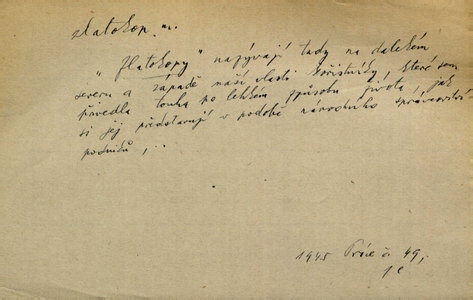 zlatokop m.
„ Zlatokopy " nazývají tady na dalekém
severu a západě naší vlasti kořistníky, které sem
přivedla touha po lehkém způsobu života, jak
si jej představují v podobě národního správcovství
podniků, ..
1945 Práce č. 49,